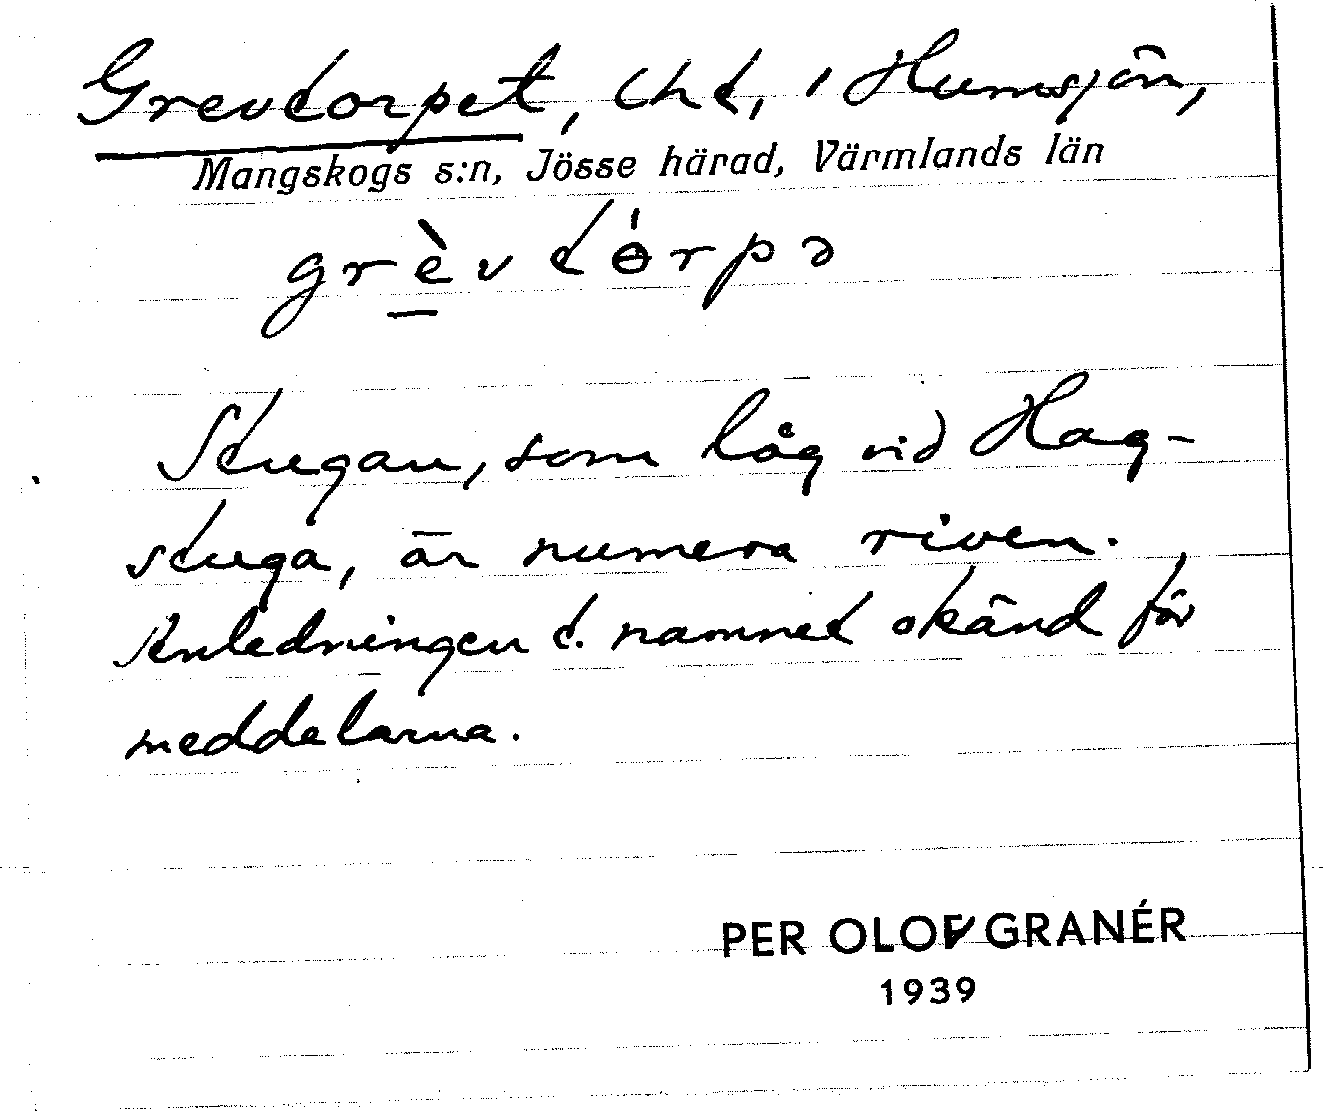 Grevtorpet, lht, i Humsjön,
Mangskogs s:n, Jösse härad, Värmlands län
grèvtɵ́rpə
Stugan, som låg vid Hag-
stuga, är numera riven.
Anledningen t. namnet okänd för
meddelarna.
PER OLOF GRANÉR
1939